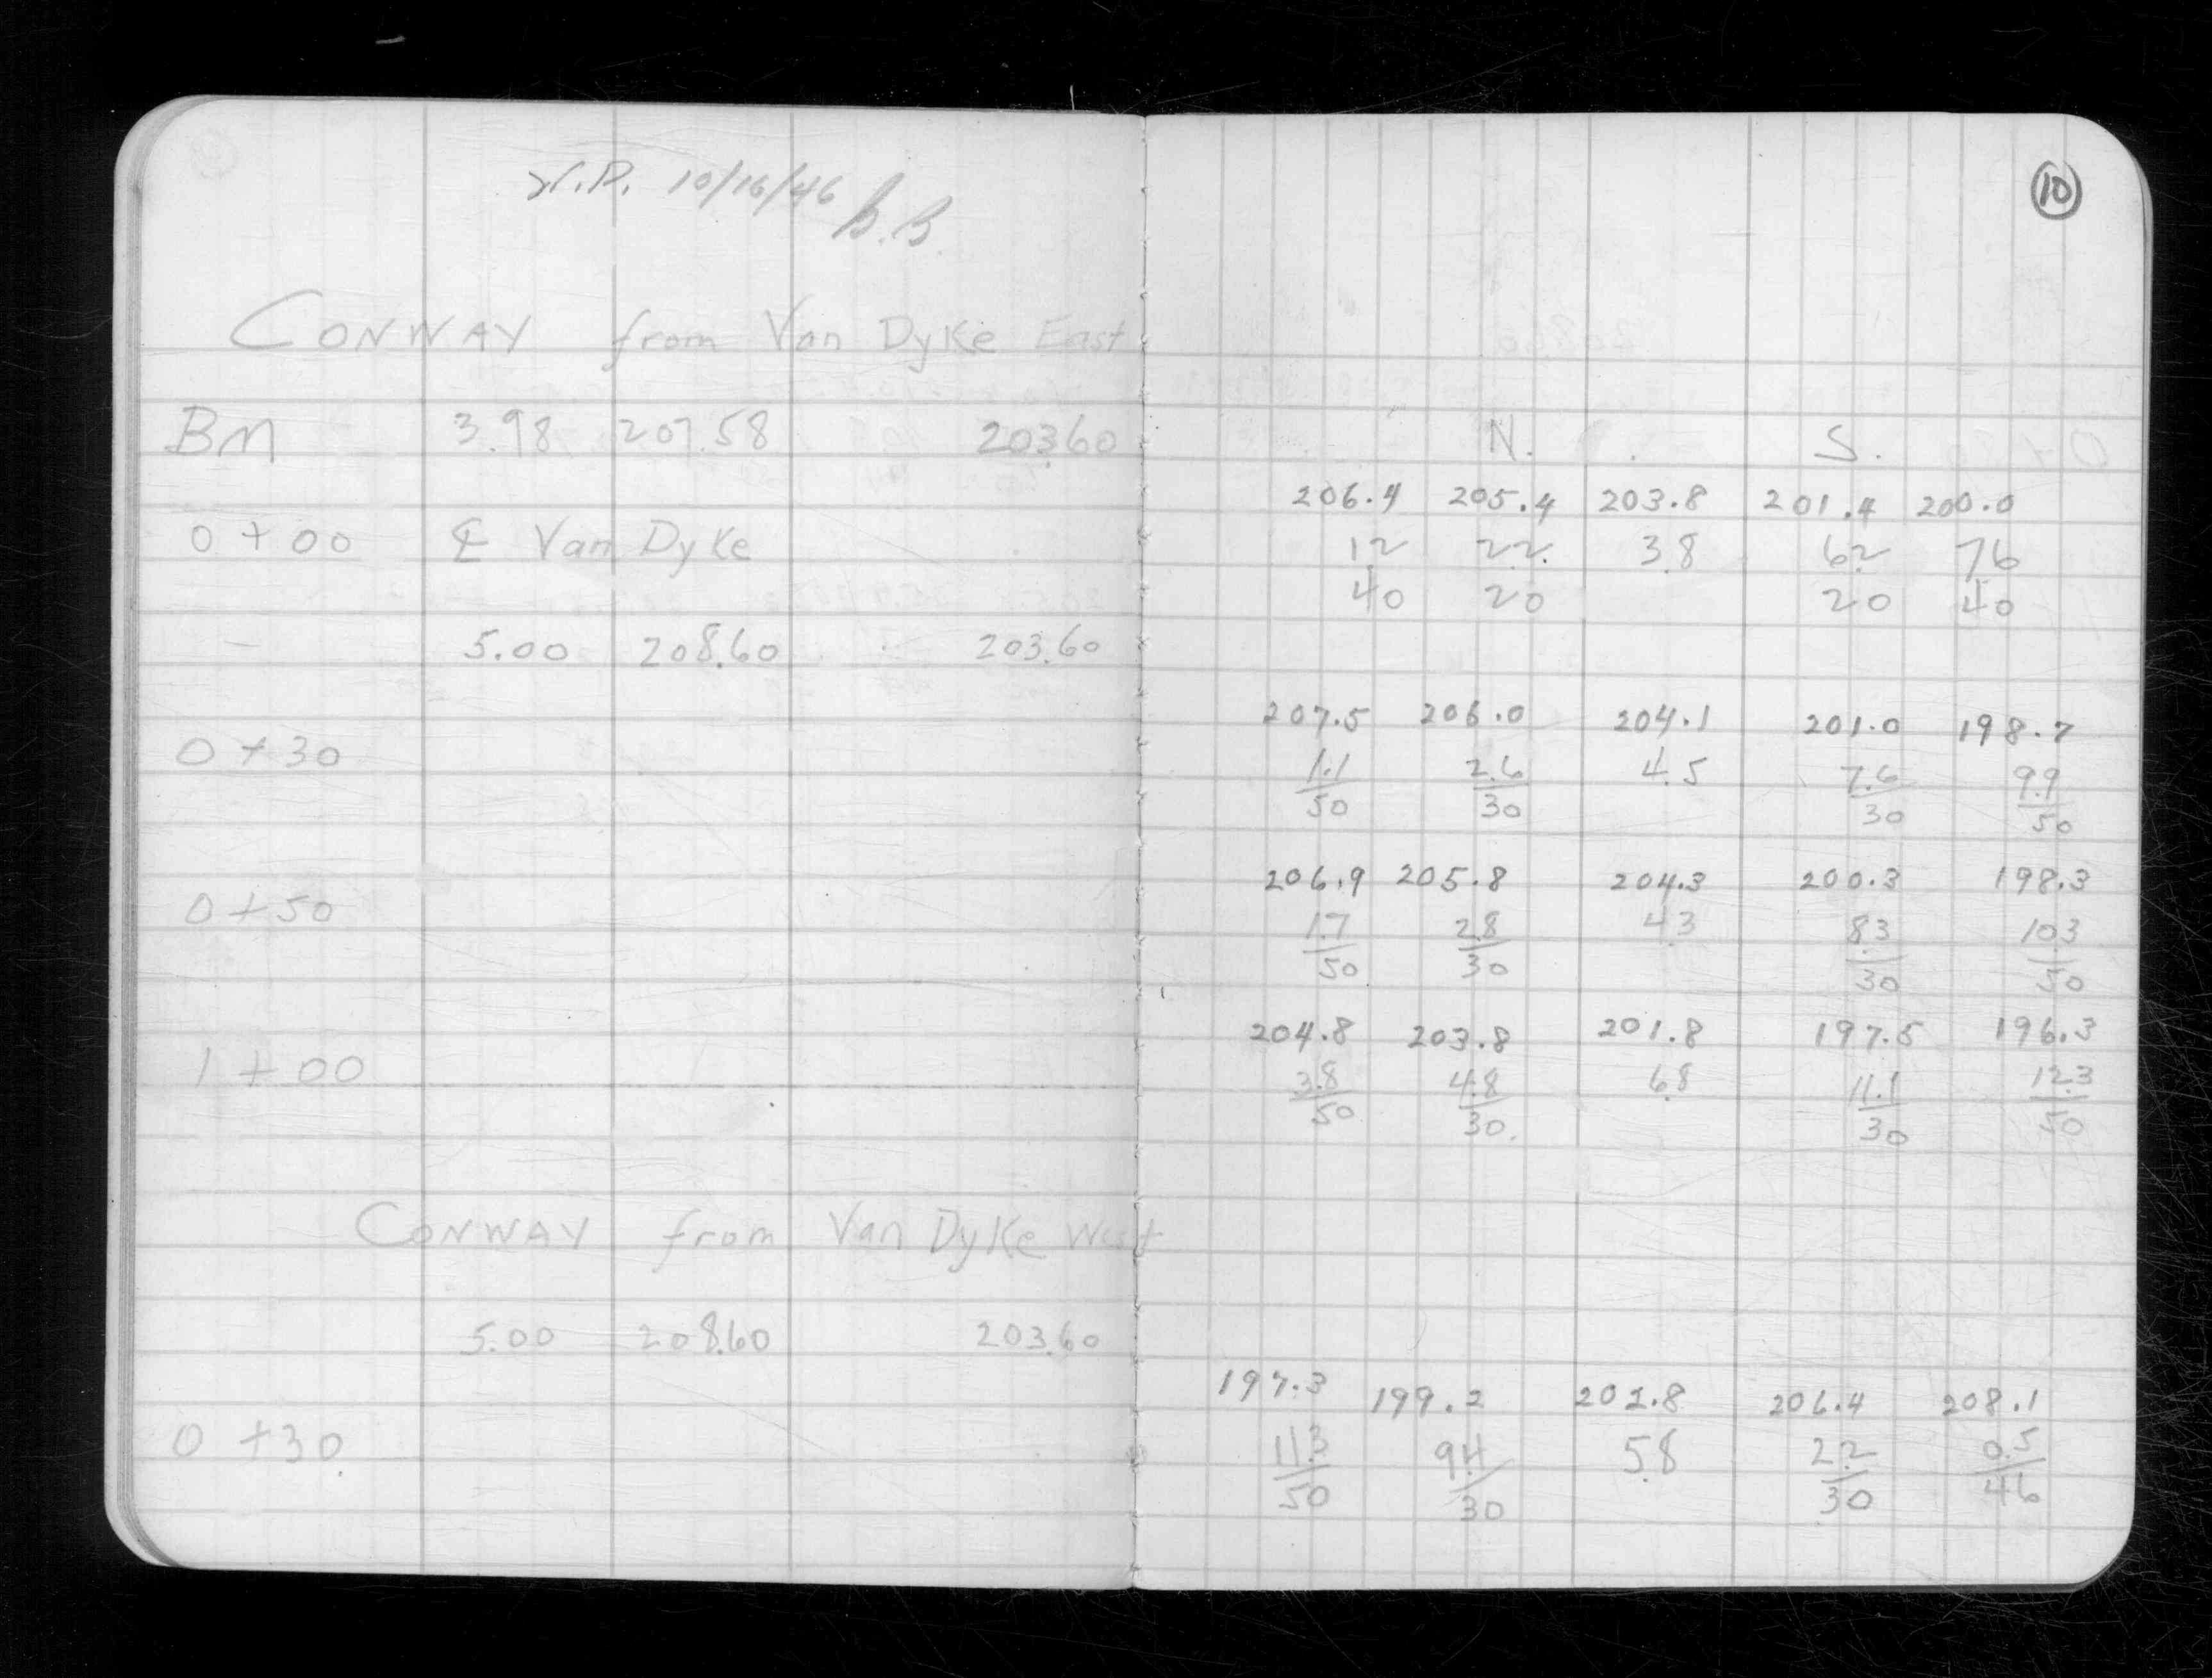 10/16/46 B.B.
10
CONWAY from Van Dyke East
BM 3.98 207.58 203.60
N. S.
206.4 205.4 203.8 201.4 200.0
0+00 ℄ Van Dyke
1.2 2.2 3.8 6.2 7.6
40 20 20 40
5.00 208.60 203.60
207.5 206.0 204.1 201.0 198.7
0+30
1.1 2.6 4.5 7.6 9.9
50 30 30 50
206.9 205.8 204.3 200.3 198.3
0+50
1.7 2.8 4.3 8.3 10.3
50 30 30 50
204.8 203.8 201.8 197.5 196.3
1+00
3.8 4.8 6.8 11.1 12.3
50 30. 30 50
CONWAY from Van Dyke West
5.00 208.60 203.60
197.3 199.2 202.8 206.4 208.1
0+30
11.3 9.4 5.8 2.2 0.5
50 30 30 46